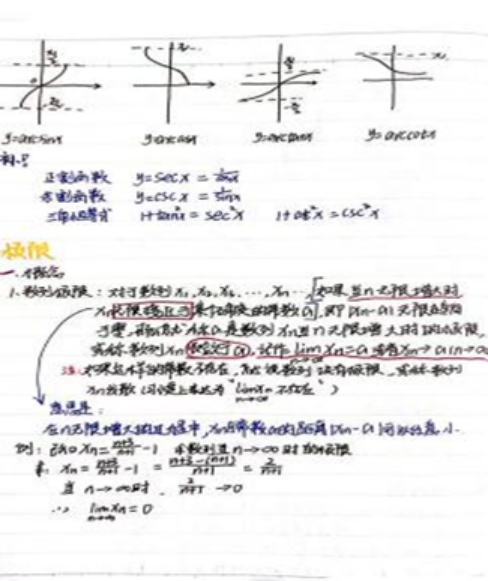 y=arcsinx y=arccosx y=arctanx y=arccotx
正割函数 y=secx = 1/cosx
余割函数 y=cscx = 1/sinx
三角恒等式 1+tan²x = sec²x 1+cot²x = csc²x
极限
一.概念
1.数列极限：对于数列 x₁, x₂, x₃, …, xₙ… 如果当n无限增大时
xₙ无限接近于某个确定的常数a，即|xₙ-a|无限趋向
于零，那么a是数列xₙ当n无限增大时的极限，
或称数列xₙ收敛于a，记作 lim xₙ=a 或者 xₙ→a(n→∞)
n→∞
注：如果这样的常数不存在，就说数列没有极限，或称数列
xₙ发散（习惯上表达为"lim xₙ不存在"）
n→∞
意思是：
在n无限增大的过程中，xₙ与常数a的距离|xₙ-a|可以任意小.
例：已知 xₙ = (n+3)/(n+1) - 1 求数列当n→∞时的极限
xₙ = (n+3)/(n+1) - 1 = (n+3-(n+1))/(n+1) = 2/(n+1)
当 n→∞时，2/(n+1) →0
∴ lim xₙ = 0
n→∞